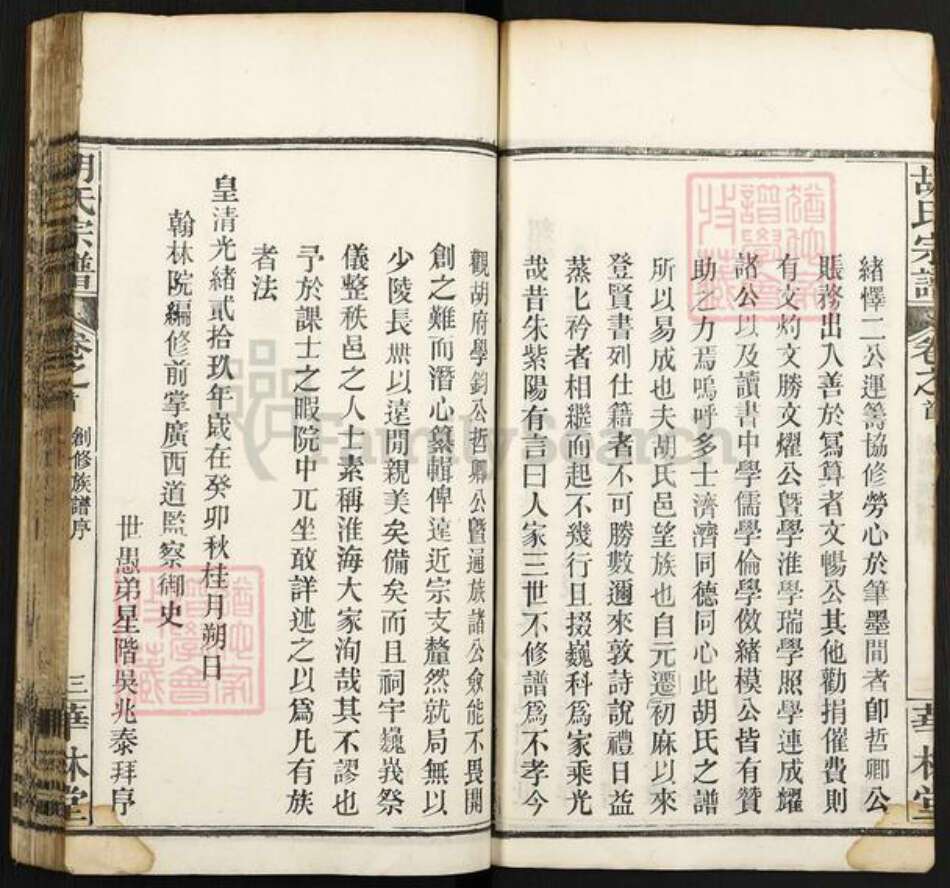 胡氏宗譜
卷之首
華林堂
緒懌二公運籌協修勞心於筆墨間者卽哲卿公
賬務出入善於寫算者文暢公其他勸捐催費則
有文灼文勝文燿公曁學淮學瑞學照學連成耀
諸公以及讀書中學儒學倫學傚緒模公皆有贊
助之力焉嗚呼多士濟濟同德同心此胡氏之譜
所以易成也夫胡氏邑望族也自元遷初麻以來
登賢書列仕籍者不可勝數邇來敦詩說禮日益
蒸上衿者相繼而起不幾行且掇巍科爲家乘光
哉昔朱紫陽有言曰人家三世不修譜爲不孝今
觀胡府學鈞公哲卿公曁遍族諸公僉能不畏開
創之難而潛心纂輯俾遠近宗支釐然就局無以
少陵長無以遠間親美矣備矣而且祠宇巍峩祭
儀整秩邑之人士素稱淮海大家洵哉其不謬也
予於課士之暇院中兀坐敢詳述之以爲凡有族
者法
皇清光緒貳拾玖年歲在癸卯秋桂月朔日
翰林院編修前掌廣西道監察御史
世愚弟星階吳兆泰拜序
胡氏宗譜
卷之首
創修族譜序
三
華林堂
FamilySearch